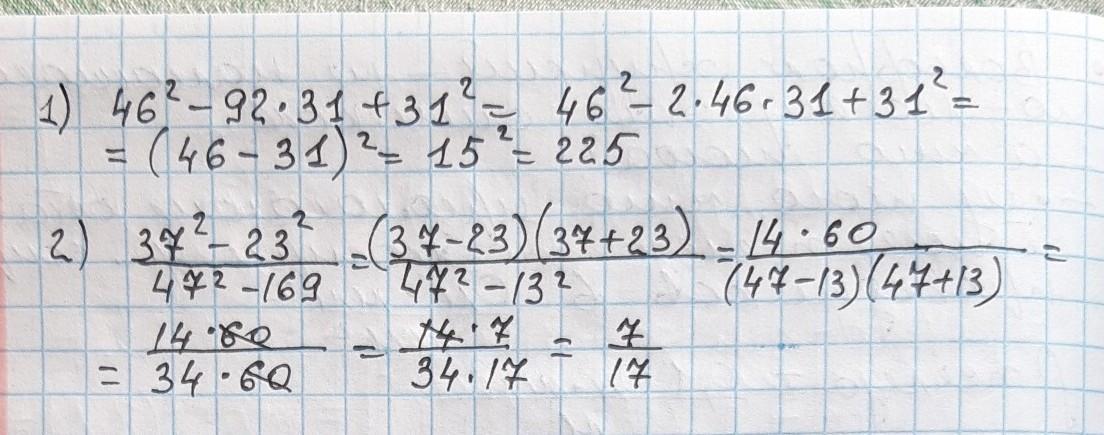 1) 46² - 92·31 + 31² = 46² - 2·46·31 + 31² =
= (46 - 31)² = 15² = 225
2) (37² - 23²)/(47² - 169) = ((37-23)(37+23))/(47² - 13²) = (14·60)/((47-13)(47+13)) =
= (14·60)/(34·60) = (14·7)/(34·17) = 7/17